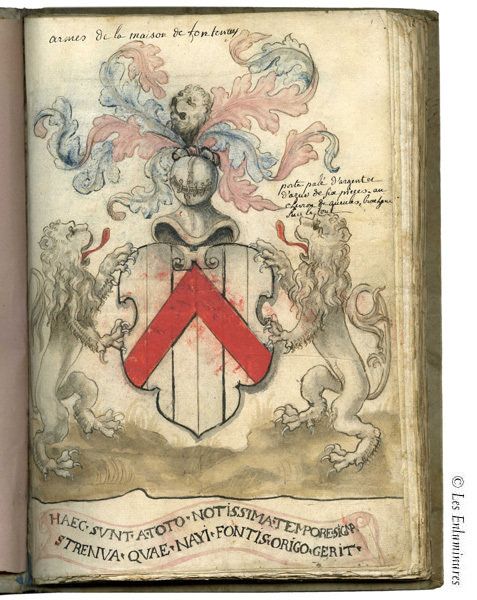 armes de la maison de fontenay
porte palé d'argent et
d'azur de six pieces, au
chevron de gueules, brochant
sur le tout
HAEC · SVNT · A · TOTO · NOTISSIMA · TEMPORE · SIGNA
STRENVA · QVAE · NAVI · FONTIS · ORIGO · GERIT ·
© Les Enluminures